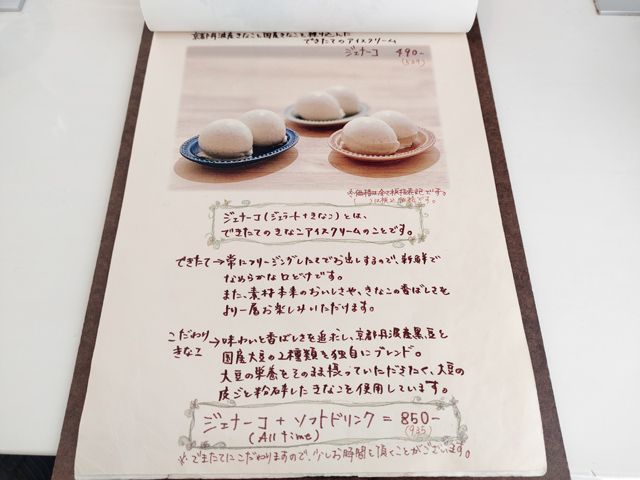 京都丹波産きなこと国産きなこを練り込んだ
できたてのアイスクリーム
ジェナーコ 490-
(539)
※価格は全て税抜表記です。
( )は税込価格です。
ジェナーコ(ジェラート+きなこ)とは、
できたてのきなこアイスクリームのことです。
できたて→常にフリージングしたてでお出しするので、新鮮で
なめらかな口どけです。
また、素材本来のおいしさや、きなこの香ばしさを
より一層お楽しみいただけます。
こだわり→味わいと香ばしさを追求し、京都丹波産黒豆と
きなこ 国産大豆の2種類を独自にブレンド。
大豆の栄養をそのまま摂っていただきたく、大豆の
皮ごと粉砕したきなこを使用しています。
ジェナーコ + ソフトドリンク = 850-
(All time) (935)
※できたてにこだわりますので、少しお時間を頂くことがございます。